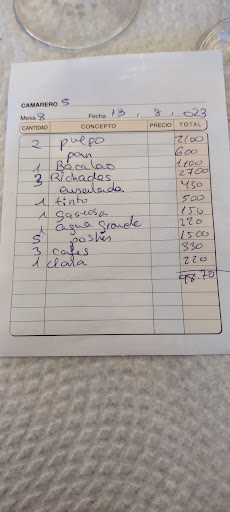 CAMARERO 5
Mesa 8 Fecha 13, 8, 023
CANTIDAD CONCEPTO PRECIO TOTAL
2 pulpo 2100
pan 600
1 Bacalao 1100
3 Richadas 2700
ensalada 450
1 tinto 500
1 gasiosa 150
1 agua grande 220
5 postres 1500
3 cafes 330
1 clara 220
98.70